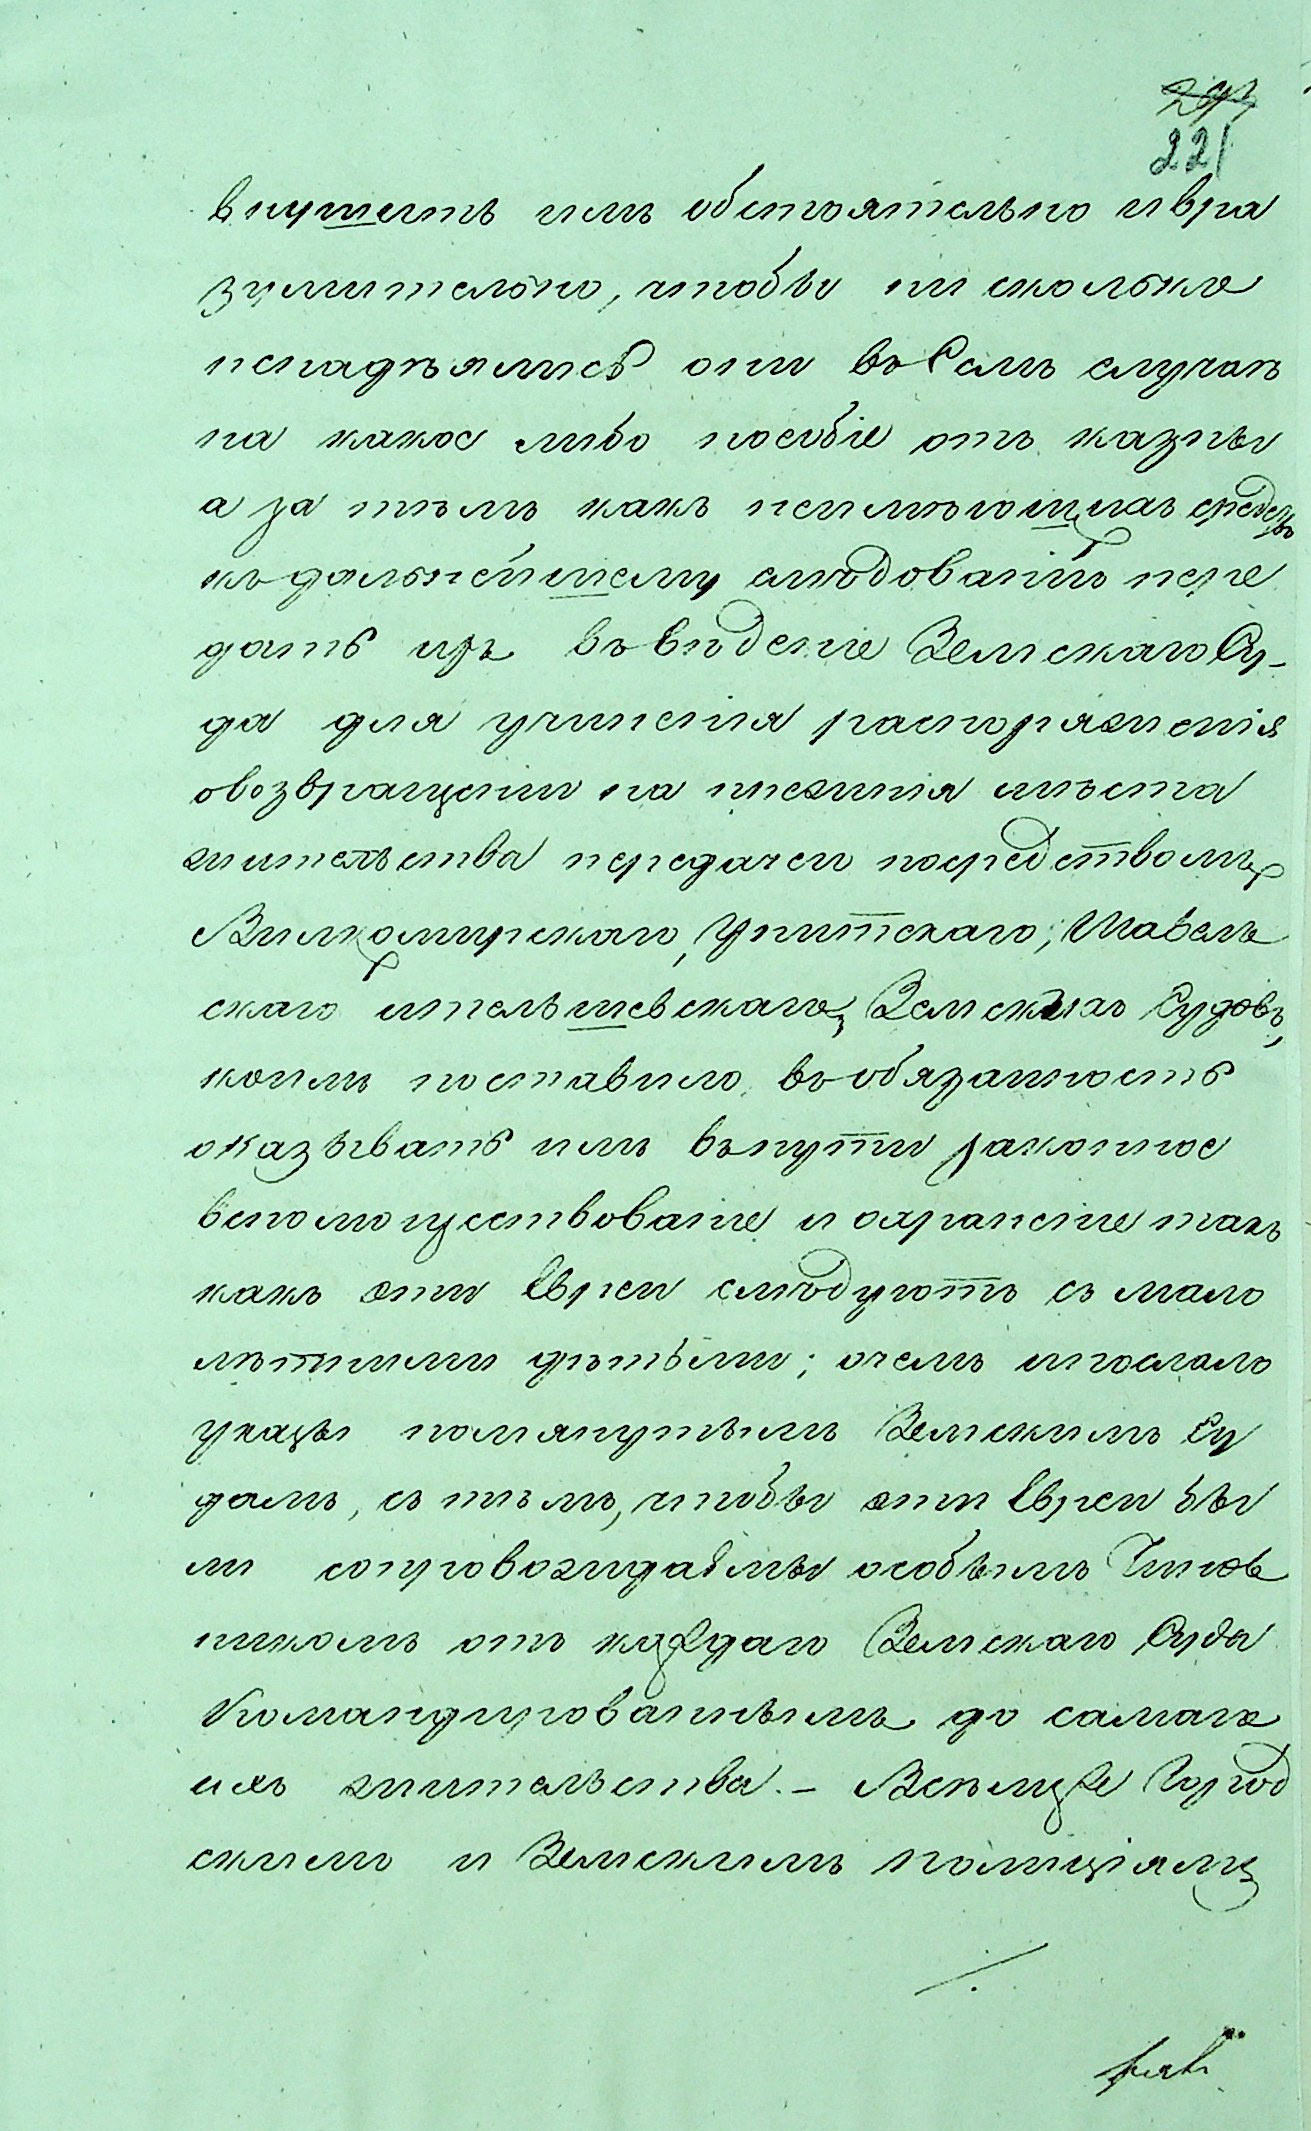 221
внушить имъ обстоятельно и вра
зумительно, чтобы ни сколько
ненадѣялись они въ семъ случаѣ
на какое либо пособіе отъ казны
а за тѣмъ какъ неимѣющихъ средствъ
къ дальнѣйшему слѣдованію пере
дать ихъ въ вѣденіе Земскаго Су-
да для учиненія распоряженія
овозвращеніи на прежнія мѣста
жительства передачею посредствомъ
Вилкомирскаго, Упитскаго, Шавель
скаго ительшевскаго, Земскихъ Судовъ,
коимъ поставило въ обязанность
оказывать имъ въ пути законное
вспомоществованіе и охраненіе такъ
какъ эти Евреи слѣдуютъ съ мало
лѣтними дѣтьми; очемъ ипослало
указы помянутымъ Земскимъ Су
дамъ, съ тѣмъ, чтобы эти Евреи бы
ли сопровождаемы особымъ Чинов
никомъ отъ каждаго Земскаго Суда
Командированнымъ до самаго
ихъ жительства. – Всѣмже Город
скимъ и Земскимъ полиціямъ